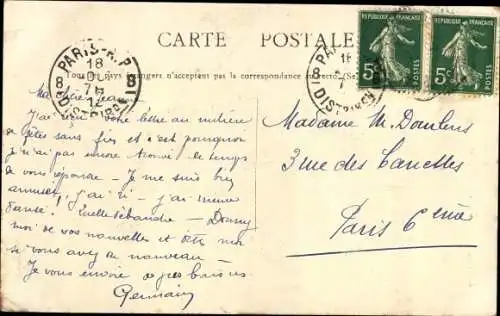 CARTE POSTALE
Tous les pays étrangers n'acceptent pas la correspondance au recto (Se
PARIS-R.P.
18
8 8
7
12
DISTRIBUTION
PA
18
8
7
DISTRIBUTION
REPUBLIQUE FRANÇAISE
5c
POSTES
REPUBLIQUE FRANÇAISE
5c
POSTES
Ma
J'ai votre lettre au milieu
de fêtes sans fin et c'est pourquoi
je n'ai pas encore trouvé le temps
de vous répondre – Je me suis bien
amusée, j'ai ri – j'ai même
dansé! Quelle débandade – Donnez
moi de vos nouvelles et dites moi
si vous avez du nouveau –
Je vous envoie de gros baisers
Germain
Madame M. Doulens
3 rue des Canettes
Paris 6ème